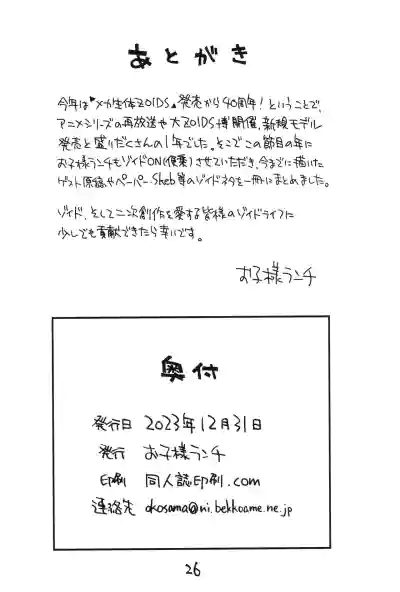 あとがき
今年は「メカ生体ZOIDS」発売から40周年！ということで、
アニメシリーズの再放送や大ZOIDS博開催、新規モデル
発売と盛りだくさんの1年でした。そこでこの節目の年に
お子様ランチもゾイドON(便乗)させていただき、今までに描いた
ゲスト原稿やペーパー、Skeb等のゾイドネタを一冊にまとめました。
ゾイド、そして二次創作を愛する皆様のゾイドライフに
少しでも貢献できたら幸いです。
お子様ランチ
奥付
発行日 2023年12月31日
発行 お子様ランチ
印刷 同人誌印刷.com
連絡先 okosama@ni.bekkoame.ne.jp
26